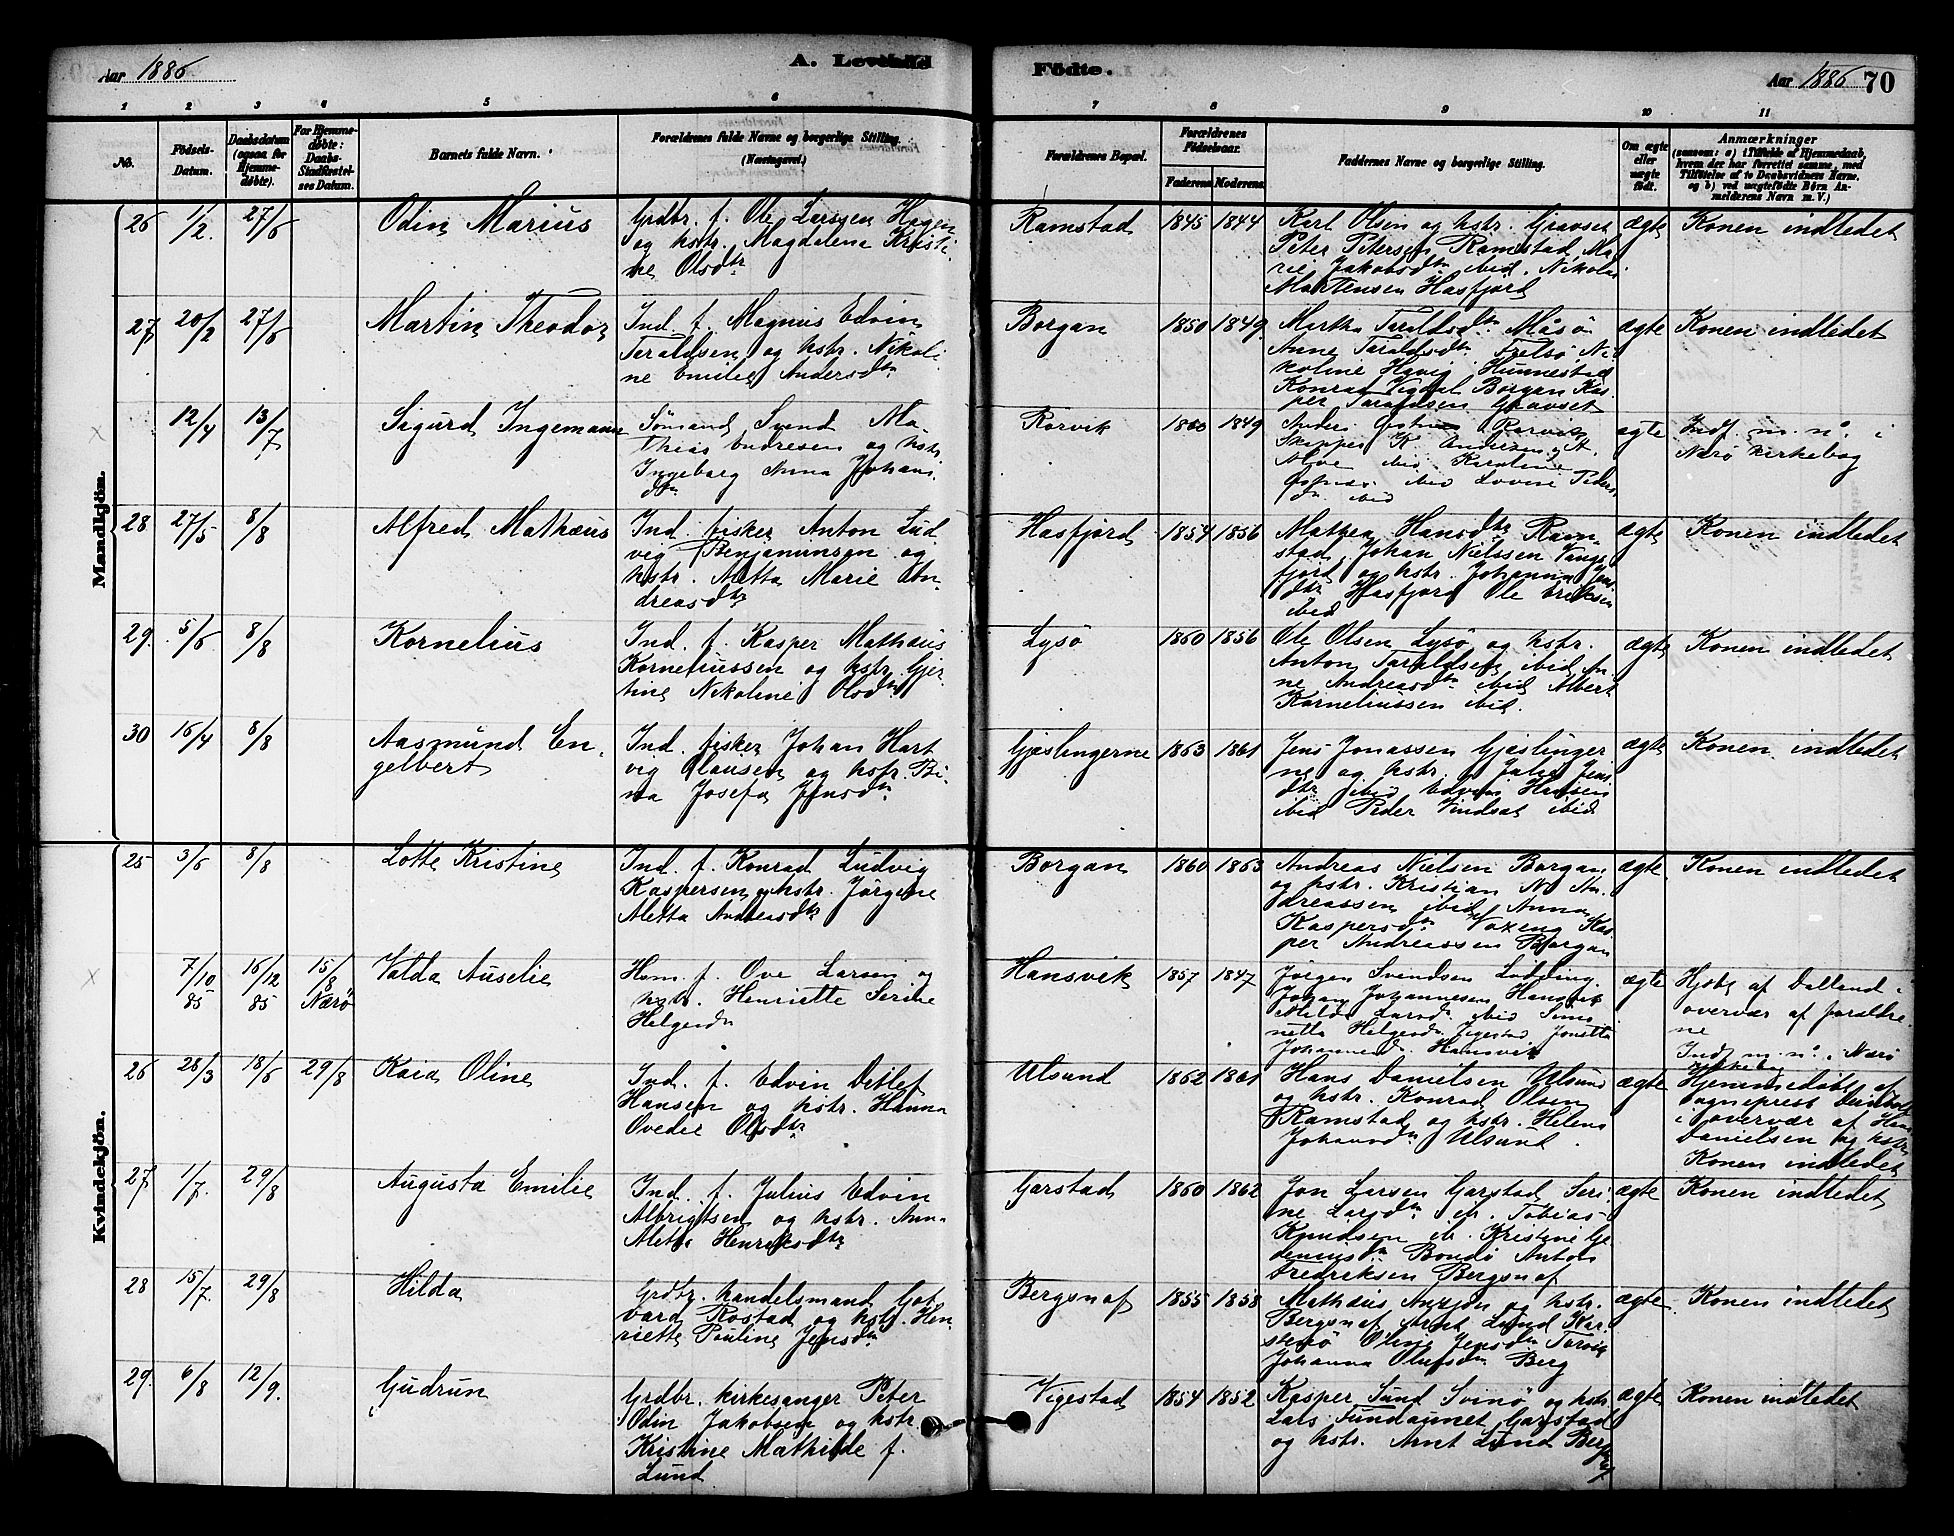 Aar 1886
A. Levende
Födte.
Aar 1886 70
1 2 3 4 5 6 7 8 9 10 11
No.
Födsels-Datum.
Daabsdatum (ogsaa for Hjemme-døbte).
For Hjemme-døbte: Daabs-Stadfæstel-ses Datum.
Barnets fulde Navn.
Forældrenes fulde Navne og borgerlige Stilling.
(Næringsvei.)
Forældrenes Bopæl.
Forældrenes Fødselsaar.
Faderens Moderens
Faddernes Navne og borgerlige Stilling.
Om ægte eller uægte født.
Anmærkninger
(saasom: a) i Tilfælde af Hjemmedaab, hvem der har forrettet samme, med Tilføielse af to Daabsvidners Navne, og b) ved uægtefødte Børn Anmelderens Navn m. V.)
Mandkjön.
26 1/2. 27/6 Odin Marius
Grdbr. f. Ole Larssen Hagen
og hstr. Magdalena Kristi
ne Olsdtr
Ramstad 1845 1844
Karl Olsen og hstr. Gravset
Peter Petersen Ramstad Ma
rie Jakobsdtr ibid. Nikolai
Martensen Hasfjord
ægte Konen indledet
27 20/2 27/6 Martin Theodor
Ind. f. Magnus Edvin
Taraldsen og hstr. Nikoli
ne Emilie Andersdtr
Borgan 1850 1849.
Martha Taraldsdtr Måsø
Anne Taraldsdtr Frelsø Ni
koline Høvig Hunnestad
Konrad Vigdal Borgan Kas
per Taraldsen Gravset
ægte Konen indledet
12/4 13/7 Sigurd Ingemann
Sømand Svend Ma
thias Andresen og hstr
Ingeborg Anna Johans
dtr
Rørvik 1860 1849
Anders Rørvik
Skipper K. Andersen
ibid Karoline
ibid Lovise Peders
dtr ibid
ægte Indf. m. no. i
Nærø kirkebog
28 27/5 8/8 Alfred Mathæus
Ind fisker Anton Lud
vig Benjaminsen og
hstr. Aletta Marie An
dreasdtr
Hasfjord 1854 1856
Mathea Hansdtr Ram
stad Johan Nielssen Vangs
fjord og hstr. Johanna Jens
dtr Hasfjord Ole Eriksen
ibid
ægte Konen indledet
29. 5/6 8/8 Kornelius
Ind. f. Kasper Mathæus
Korneliussen og hstr. Gjer
tine Nikoline Olsdtr
Lysø 1860 1856
Ole Olsen Lysø og hstr.
Anton Taraldsen ibid An
ne Andreasdtr ibid Albert
Korneliussen ibid.
ægte Konen indledet
30 16/4 8/8 Aasmund En
gelbert
Ind. fisker Johan Hart
vig Olausen og hstr. Bi
na Josefa Jensdtr
Gjæslingerne 1863 1861
Jens Jonassen Gjæslinger
ne og hstr. Julie Jens
dtr ibid Edvin Hansen
ibid Peder Vindsat ibid
ægte Konen indledet
Kvindekjön.
25 3/6 8/8 Lotte Kristine
Ind. f. Konrad Ludvig
Kaspersen og hstr. Jørgine
Aletta Andreasdtr
Borgan 1860 1863
Andreas Nielsen Borgan
og hstr. Kristian N. An
dreassen ibid Anna
Kaspersdtr Voxeng Kas
per Andreassen Borgan
ægte Konen indledet
7/10 85 16/12 85 15/8 Nærø Valda Auselie
Hsm. f. Ove Larsen og
hstr. Henriette Serine
Helgesdtr
Hansvik 1857 1847
Jørgen Svendsen Lodding
Johan Johannesen Hansvik
Milda Larsdtr ibid Simo
netta Helgesdtr Vegestad Jonetta
Johannesdtr Hansvik
ægte Hjdbt af Dalland i
overvær af forældre
ne
Indf m. no. i Nærø
kirkebog
26 28/3 18/6 29/8 Kaia Oline
Ind. f. Edvin Ditlef
Hansen og hstr. Hanna
Ovedie Olsdtr
Ulsund 1862 1861
Hans Danielsen Ulsund
og hstr. Konrad Olsen
Ramstad og hstr. Helena
Johansdtr Ulsund.
ægte Hjemmedøbt af
sognepræst
i overvær af Hans
Danielsen og hstr
Konen indledet
27 1/7. 29/8 Augusta Emilie
Ind. f. Julius Edvin
Albrigtsen og hstr. Ann
Aletta Henriksdtr
Garstad 1860 1862
Jon Larsen Garstad Seri
ne Larsdtr ib. Tobias
Knudsen ib. Kristine Ge
dennisdtr Bondø Anton
Fredriksen Bergsnaf
ægte Konen indledet
28 15/7. 29/8 Hilda
Grdbr. handelsmand Got
vard Rostad og hstr. Hen
riette Pauline Jensdtr
Bergsnaf 1855 1858
Mathæus Anzjøn og hstr.
Bergsnaf Arnt Lund Kar
stenø Oline Jensdtr
Johanna Olufsdtr Berg
ægte. Konen indledet
29. 6/8 12/9. Gudrun
Grdbr. kirkesanger Peter
Odin Jakobsen og hstr
Kristine Mathilde f.
Lund
Vegestad 1854 1852
Kasper Lund Svinø og hstr
Lars Garstad
og hstr. Arnt Lund
ægte Konen indledet